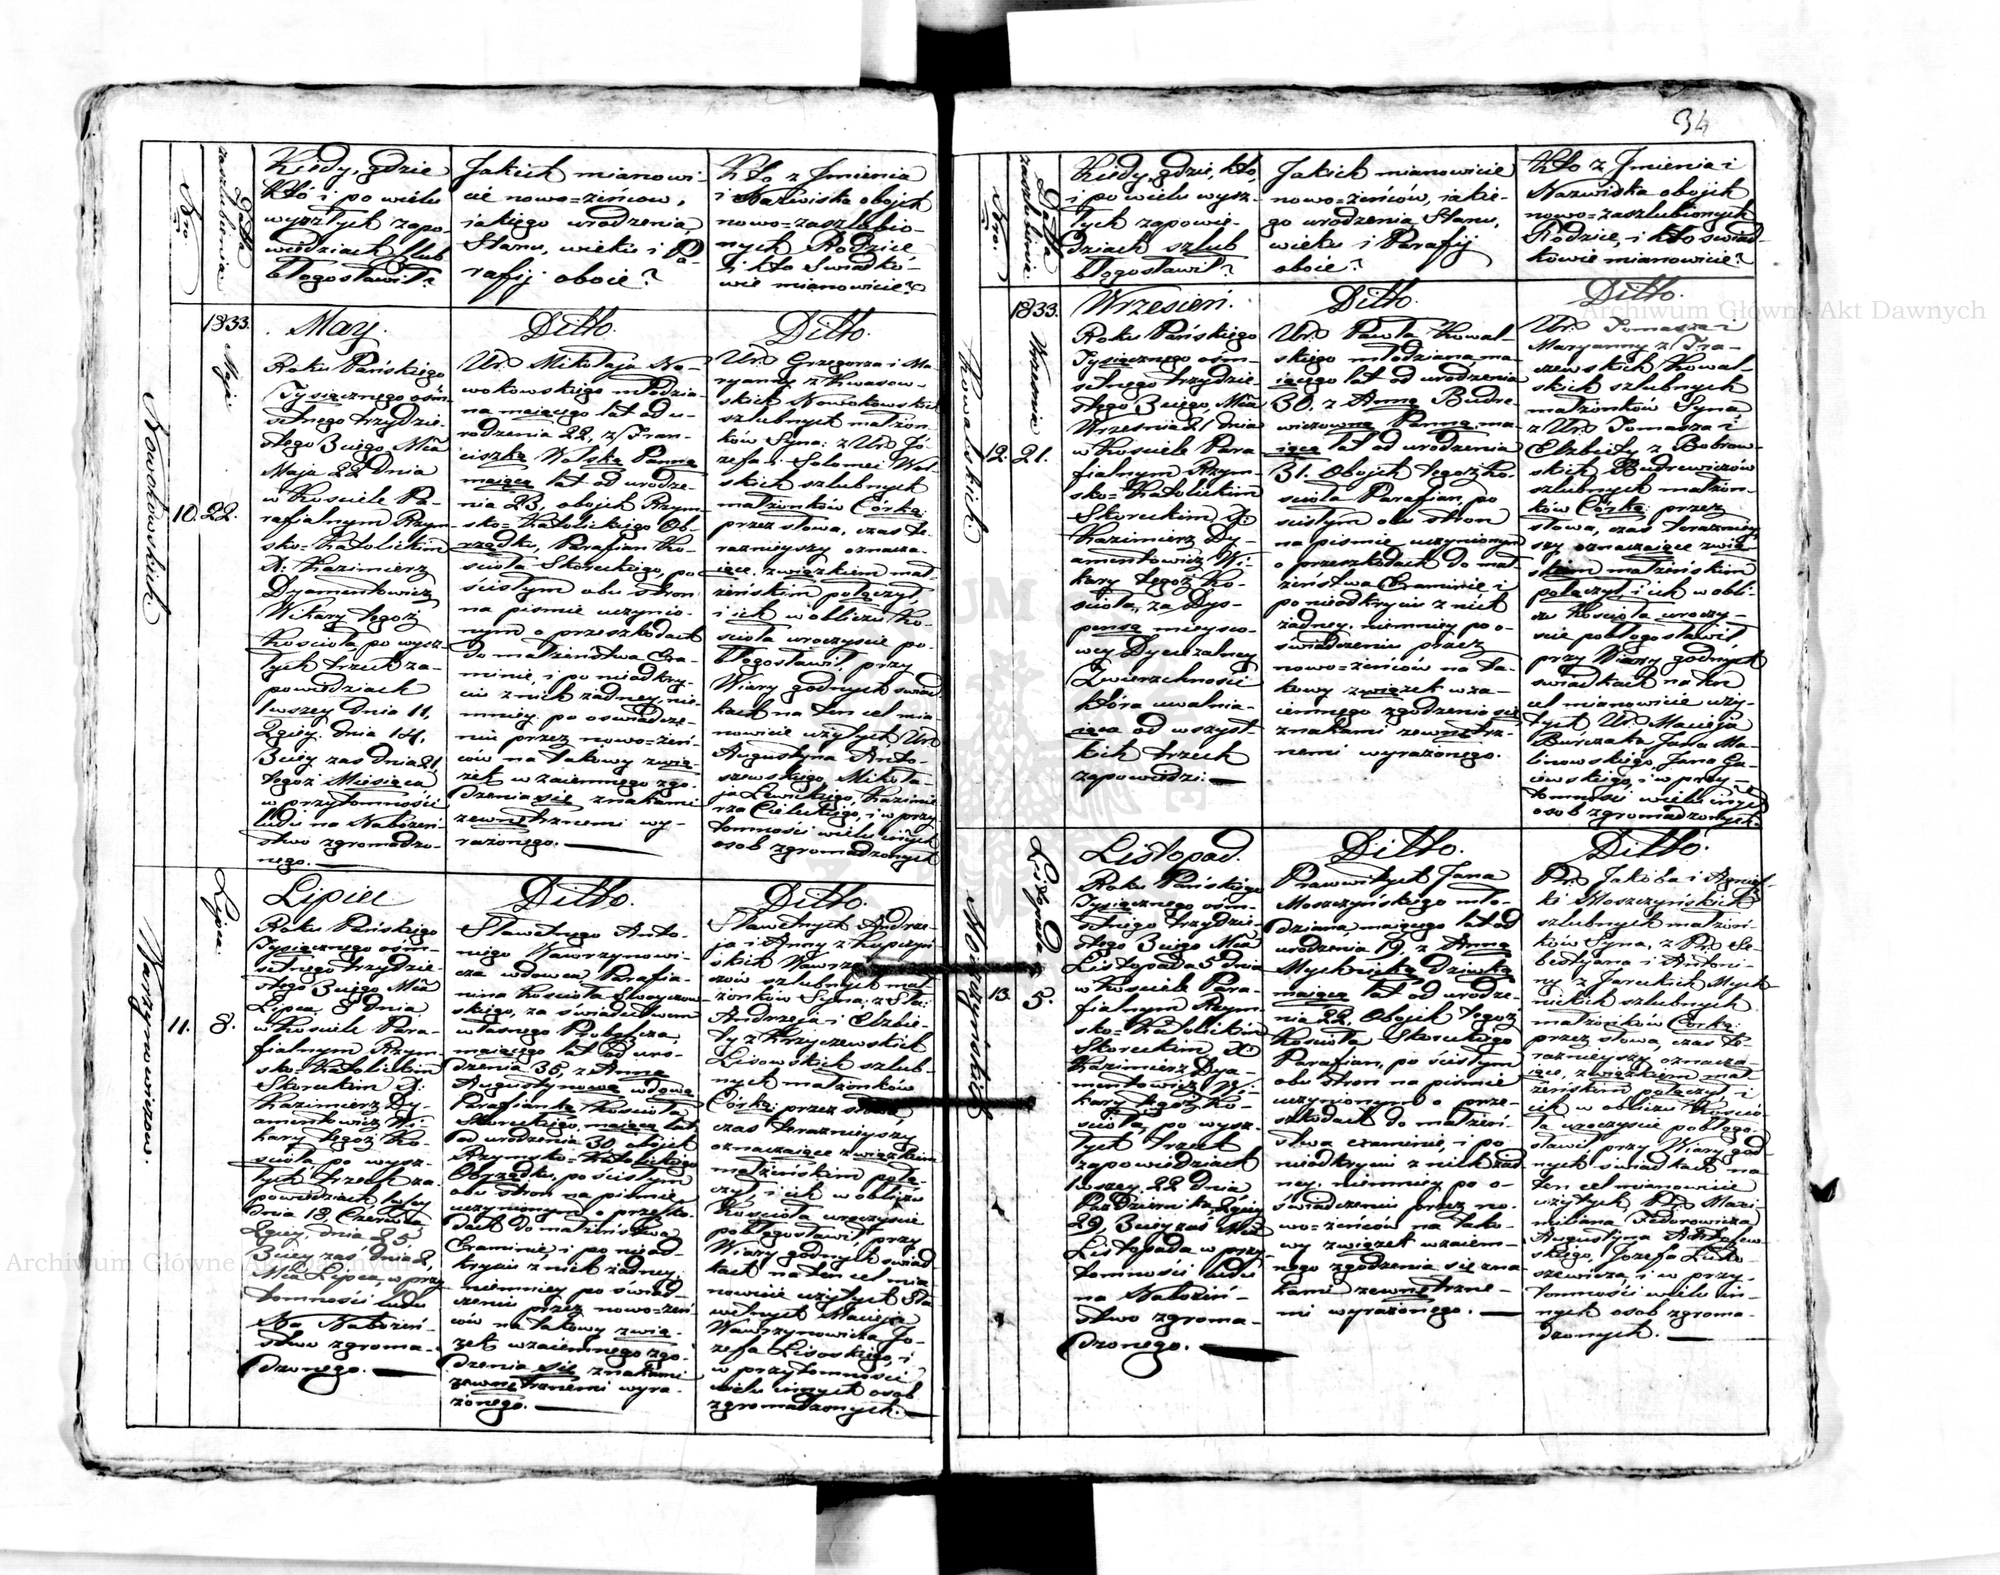 34
Nro
Data zaszlubienia
Kiedy, gdzie
Kto i po wielu
wyszłych zapo-
wiedziach szlub
błogosławił?
Jakich mianowi-
cie nowo=zieńcow,
iakiego urodzenia,
Stanu, wieku i Pa-
rafij oboie?
Kto z Jmienia
i Nazwiska oboich
nowo=zaszlubio-
nych Rodzice
i kto Swiadko-
wie mianowicie?
1833.
Maja
22.
10.
Nowokowskich
May.
Roku Pańskiego
Tysiącznego ośm-
setnego trzydzie-
stego 3ciego Mca
Maja 22 Dnia
w Kosciele Pa-
rafialnym Rzym-
sko=Katolickim
X: Kazimierz
Dyamentowicz
Wikary tegoż
Kościoła po wysz-
łych trzech za-
powiedziach
1wszey Dnia 11,
2giey Dnia 14,
3ciey zas Dnia 21,
tegoż Miesiąca
w przytomności
ludu na Nabożeń-
stwo zgromadzo-
nego.
Ditto.
Ur. Mikołaja No-
wokowskiego młodzia-
na maiącego lat od u-
rodzenia 22, z Fran-
ciszką Wolską Panną
maiącą lat od urodze-
nia 23, oboich Rzym-
sko=Katolickiego Ob-
rządku, Parafian Ko-
ścioła Skoreckiego, po
ścisłym obu stron
na pismie uczynio-
nym o przeszkodach
do małżeństwa Exa-
minie, i po nieodkry-
ciu z nich żadney, nie-
mniey po oswiadcze-
niu przez nowo=żeń-
ców na takowy zwią-
zek wzaiemnego zgo-
dzenia się znakami
zewnętrznemi wy-
rażonego.
Ditto.
Ur. Grzegorza i Ma-
ryanny z Kwasow-
skich Nowokowskich
szlubnych małżon-
ków Syna: z Ur. Jó-
zefa i Solomei Wol-
skich szlubnych
małżonków Córką:
przez słowa, czas te-
raznieyszy oznacza-
iące, związkiem mał-
żeńskim połączył,
i ich w obliczu Ko-
ścioła uroczyście po-
błogosławił, przy
Wiary godnych swiad-
kach na ten cel mia-
nowicie użytych Ur.
Augustyna Anto-
szewskiego, Mikoła-
ja Lewickiego, Kazimie-
rza Cieleckiego, i w przy-
tomności wielu innych
osob zgromadzonych
Lipca.
8.
11.
Warzynowiczow.
Lipiec
Roku Pańskiego
Tysiącznego ośm-
setnego trzydzie-
stego 3ciego Mca
Lipca 8 Dnia
w Kosciele Para-
fialnym Rzym-
sko=Katolickim
Skoreckim X:
Kazimierz Dy-
amentowicz Wi-
kary tegoż Ko-
ścioła po wysz-
łych trzech za-
powiedziach 1wszey
Dnia 18 Czerwca,
2giey, dnia 25
3ciey zaś Dnia 2,
Mca Lipca, w przy-
tomności ludu
Na Nabożeń-
stwo zgroma-
dzonego.
Ditto.
Sławetnego Anto-
niego Wawrzynowi-
cza wdowca Parafia-
nina Kościoła
skiego, za swiadectwem
własnego Proboszcza,
maiącego lat od uro-
dzenia 35, z Anną
Augustynową wdową
Parafianką Kościoła
Skoreckiego, maiącą lat
od urodzenia 30 oboich
Rzymsko=Katolickiego
Obrządku, po ścisłym
obu stron na pismie
uczynionym o przeszko-
dach do małżeństwa
Examinie, i po nieod-
kryciu z nich żadney
niemniey po oświad-
czeniu przez nowo=żeń-
ców na takowy zwią-
zek wzaiemnego zgo-
dzenia się znakami
zewnętrznemi wyra-
żonego.
Ditto.
Sławetnych Andrze-
ja i Anny z Kupczyń-
skich Wawrzy
czów szlubnych mał-
żonków Syna; z Sła:
Andrzeja i Elżbie-
ty z Krzyczewskich
Lisowskich szlub-
nych małżonków
Córką: przez słowa,
czas teraznieyszy
oznaczaiące związkiem
małżeńskim połą-
czył, i ich w obliczu
Kościoła uroczyście
pobłogosławił przy
Wiary godnych swiad-
kach na ten cel mia-
nowicie użytych Sła-
wetnych Macieja
Wawrzynowicza Jo-
zefa Lisoskiego, i
w przytomności
wielu innych osob
zgromadzonych.
Nro.
Data zaszlubienia
Kiedy, gdzie, kto,
i po wielu wysz-
łych zapowie-
dziach szlub
błogosławił?
Jakich mianowicie
nowo=żeńców, iakie-
go urodzenia, Stanu,
wieku i Parafij
oboie?
Kto z Jmienia i
Nazwiska oboich
nowo=zaszlubionych
Rodzice, i kto swiad-
kowie mianowicie?
1833.
Września
21.
12.
Kowalskich
Wrzesień.
Roku Pańskiego
Tysiącznego ośm-
setnego trzydzie-
stego 3ciego, Mca
Września 21 dnia
w Kosciele Para-
fialnym Rzym-
sko=Katolickim
Skoreckim X:
Kazimierz Dy-
amentowicz Wi-
kary tegoż Ko-
ścioła, za Dys-
pensą mieysco-
wey Dyecezalney
Zwierzchności
która uwalnia-
iąca od wszyst-
kich trzech
zapowiedzi.
Ditto.
Ur. Pawła Kowal-
skiego młodziana, ma-
iącego lat od urodzenia
30. z Anną Budre-
wiczowną Panną ma-
iącą lat od urodzenia
31. Oboich tegoż Ko-
ścioła Parafian, po
ścisłym obu stron
na piśmie uczynionym
o przeszkodach do mał-
żeństwa Examinie i
po nieodkryciu z nich
żadney, niemniey po o-
świadczeniu przez
nowo=żeńców na ta-
kowy związek wza-
iemnego zgodzenia się
znakami zewnętrz-
nemi wyrażonego.
Ditto.
Ur. Tomasza i
Maryanny z Tra-
czewskich Kowal-
skich szlubnych
małżonków Syna
z Ur. Tomasza i
Elżbiety z Bobrow-
skich Budrewiczów
szlubnych małżon-
ków Córką: przez
słowa, czas teraznie-
szy oznaczaiące związ-
kiem małżeńskim
połączył i ich w obli-
czu Kościoła uroczy-
ście pobłogosławił
przy Wiary godnych
swiadkach na ten
cel mianowicie uży-
tych Ur. Macieja
Burczaka, Jana Ma-
linowskiego, Jana Ga-
iewskiego, i w przy-
tomności wielu innych
osob zgromadzonych.
Listopada
5.
13.
Moszczyńskich
Listopad.
Roku Pańskiego
Tysiącznego ośm-
setnego trzydzie-
stego 3ciego Mca
Listopada 5 dnia
w Kosciele Para-
fialnym Rzym-
sko=Katolickim
Skoreckim X:
Kazimierz Dya-
mentowicz Wi-
kary tegoż Ko-
ścioła, po wysz-
łych trzech
zapowiedziach
1wszey 22 dnia
Pazdziernika, 2giey
29, 3ciey zaś Mca
Listopada w przy-
tomności ludu
na Nabożeń-
stwo zgroma-
dzonego.
Ditto.
Pracowitych Jana
Moszczyńskiego mło-
dziana maiącego lat od
urodzenia 19, z Anną
Mychnicką dziewką
maiącą lat od urodze-
nia 22, Oboich tegoż
Kościoła Skoreckiego
Parafian, po ścisłym
obu stron na piśmie
uczynionym o prze-
szkodach do małżeń-
stwa examinie, i po
nieodkryciu z nich żad-
ney, niemniey po o-
świadczeniu przez no-
wo=żeńców na tako-
wy związek wzaiem-
nego zgodzenia się zna-
kami zewnętrzne-
mi wyrażonego.
Ditto.
Pr. Jakóba i Agniesz-
ki Moszczyńskich
szlubnych małżon-
ków Syna, z Pr. Se-
bestyana i Antoni-
ny z Jareckich Mych-
nickich szlubnych
małżonków Córką:
przez słowa, czas te-
raznieyszy oznacza-
iące, związkiem mał-
żeńskim połączył i
ich w obliczu Kościo-
ła uroczyście pobłogo-
sławił przy Wiary god-
nych świadkach na
ten cel mianowicie
użytych, Pr. Maxi-
miliana Fedorowicza
Augustyna Antoszew-
skiego, Jozefa Łuko-
szewicza, i w przy-
tomności wielu in-
nych osob zgroma-
dzonych.
Archiwum Główne Akt Dawnych
Archiwum Główne Akt Dawnych